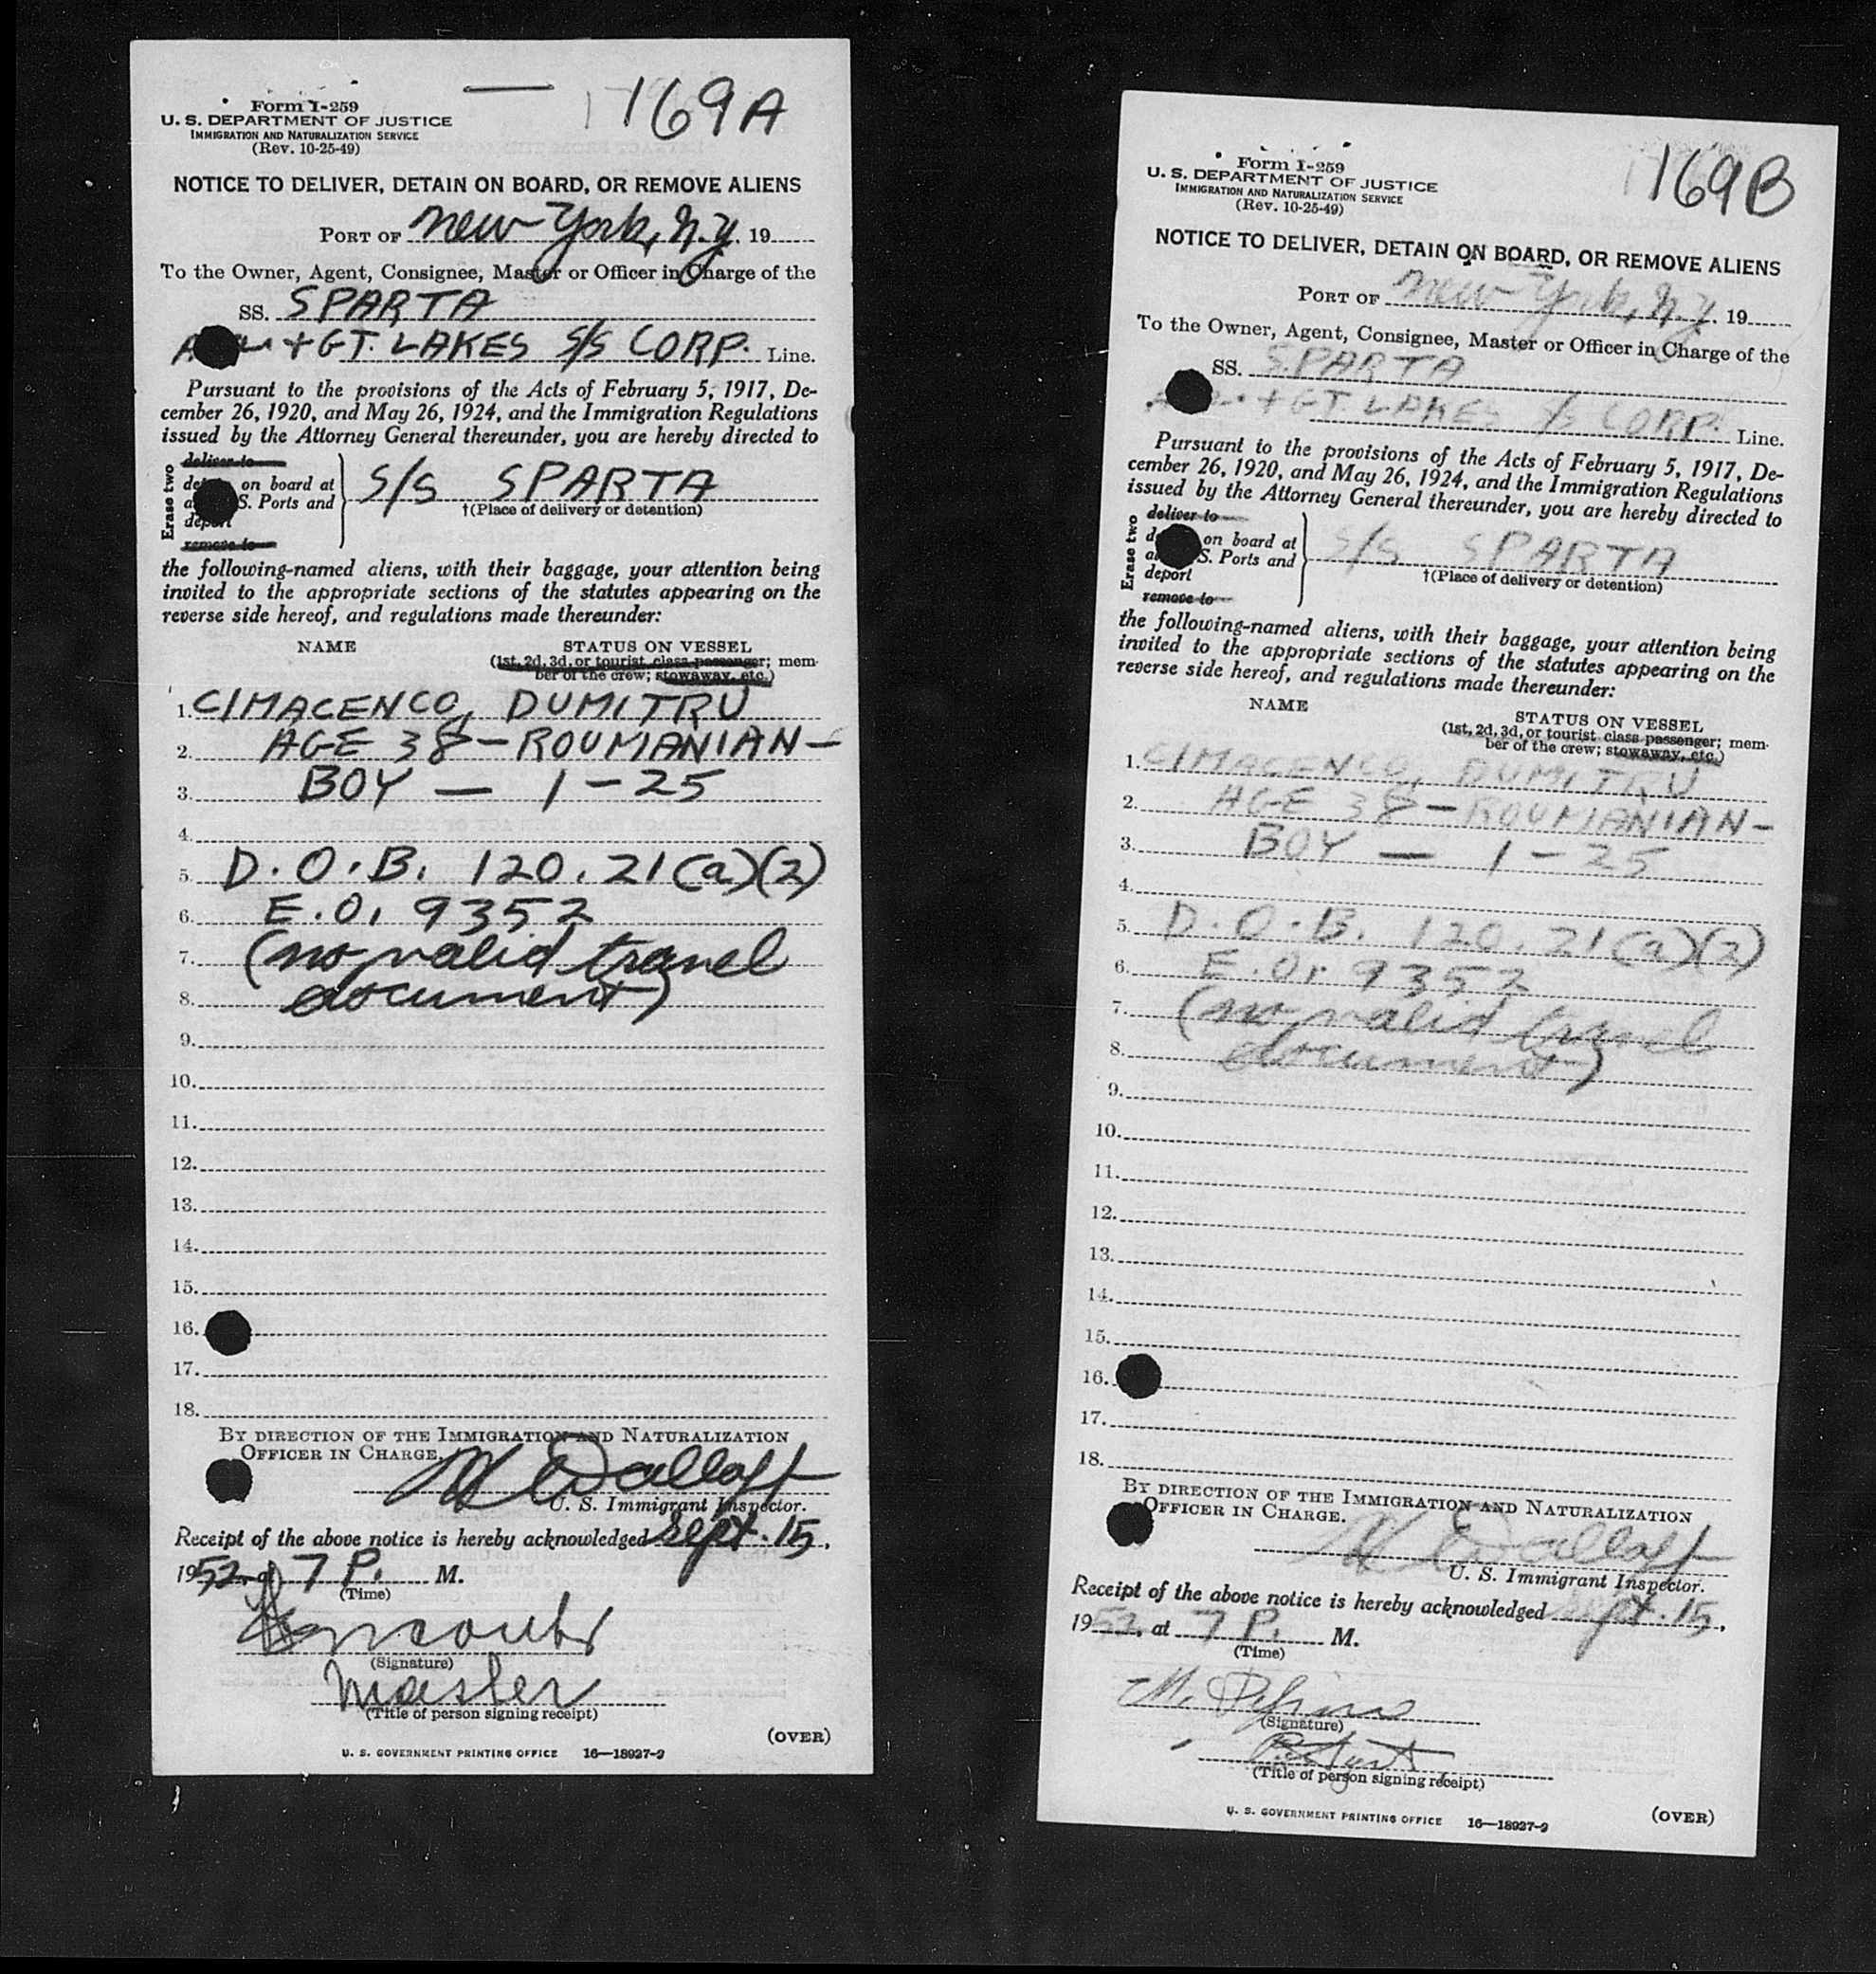 169A
Form I-259
U. S. DEPARTMENT OF JUSTICE
IMMIGRATION AND NATURALIZATION SERVICE
(Rev. 10-25-49)
NOTICE TO DELIVER, DETAIN ON BOARD, OR REMOVE ALIENS
PORT OF New York, N.Y. 19
To the Owner, Agent, Consignee, Master or Officer in Charge of the
SS. SPARTA
+ GT. LAKES S/S CORP. Line.
Pursuant to the provisions of the Acts of February 5, 1917, De-
cember 26, 1920, and May 26, 1924, and the Immigration Regulations
issued by the Attorney General thereunder, you are hereby directed to
Erase two
deliver to
on board at
S. Ports and
deport
remove to
S/S SPARTA
†(Place of delivery or detention)
the following-named aliens, with their baggage, your attention being
invited to the appropriate sections of the statutes appearing on the
reverse side hereof, and regulations made thereunder:
NAME STATUS ON VESSEL
(1st, 2d, 3d, or tourist class passenger; mem-
ber of the crew; stowaway, etc.)
1. CIMACENCO, DUMITRU
2. AGE 38 - ROUMANIAN -
3. BOY — 1-25
4.
5. D.O.B. 120.21(a)(2)
6. E.O. 9352
7. (no valid travel
8. document)
9.
10.
11.
12.
13.
14.
15.
16.
17.
18.
BY DIRECTION OF THE IMMIGRATION AND NATURALIZATION
OFFICER IN CHARGE.
U. S. Immigrant Inspector.
Receipt of the above notice is hereby acknowledged Sept. 15,
1952, at 7 P. M.
(Time)
(Signature)
Master
(Title of person signing receipt)
(OVER)
U. S. GOVERNMENT PRINTING OFFICE 16—18927-2
169B
Form I-259
U. S. DEPARTMENT OF JUSTICE
IMMIGRATION AND NATURALIZATION SERVICE
(Rev. 10-25-49)
NOTICE TO DELIVER, DETAIN ON BOARD, OR REMOVE ALIENS
PORT OF New York, N.Y. 19
To the Owner, Agent, Consignee, Master or Officer in Charge of the
SS. SPARTA
+ GT. LAKES S/S CORP. Line.
Pursuant to the provisions of the Acts of February 5, 1917, De-
cember 26, 1920, and May 26, 1924, and the Immigration Regulations
issued by the Attorney General thereunder, you are hereby directed to
Erase two
deliver to
on board at
S. Ports and
deport
remove to
S/S SPARTA
†(Place of delivery or detention)
the following-named aliens, with their baggage, your attention being
invited to the appropriate sections of the statutes appearing on the
reverse side hereof, and regulations made thereunder:
NAME STATUS ON VESSEL
(1st, 2d, 3d, or tourist class passenger; mem-
ber of the crew; stowaway, etc.)
1. CIMACENCO, DUMITRU
2. AGE 38 - ROUMANIAN -
3. BOY — 1-25
4.
5. D.O.B. 120.21(a)(2)
6. E.O. 9352
7. (no valid travel
8. document)
9.
10.
11.
12.
13.
14.
15.
16.
17.
18.
BY DIRECTION OF THE IMMIGRATION AND NATURALIZATION
OFFICER IN CHARGE.
U. S. Immigrant Inspector.
Receipt of the above notice is hereby acknowledged Sept. 15,
1952, at 7 P. M.
(Time)
(Signature)
(Title of person signing receipt)
(OVER)
U. S. GOVERNMENT PRINTING OFFICE 16—18927-2